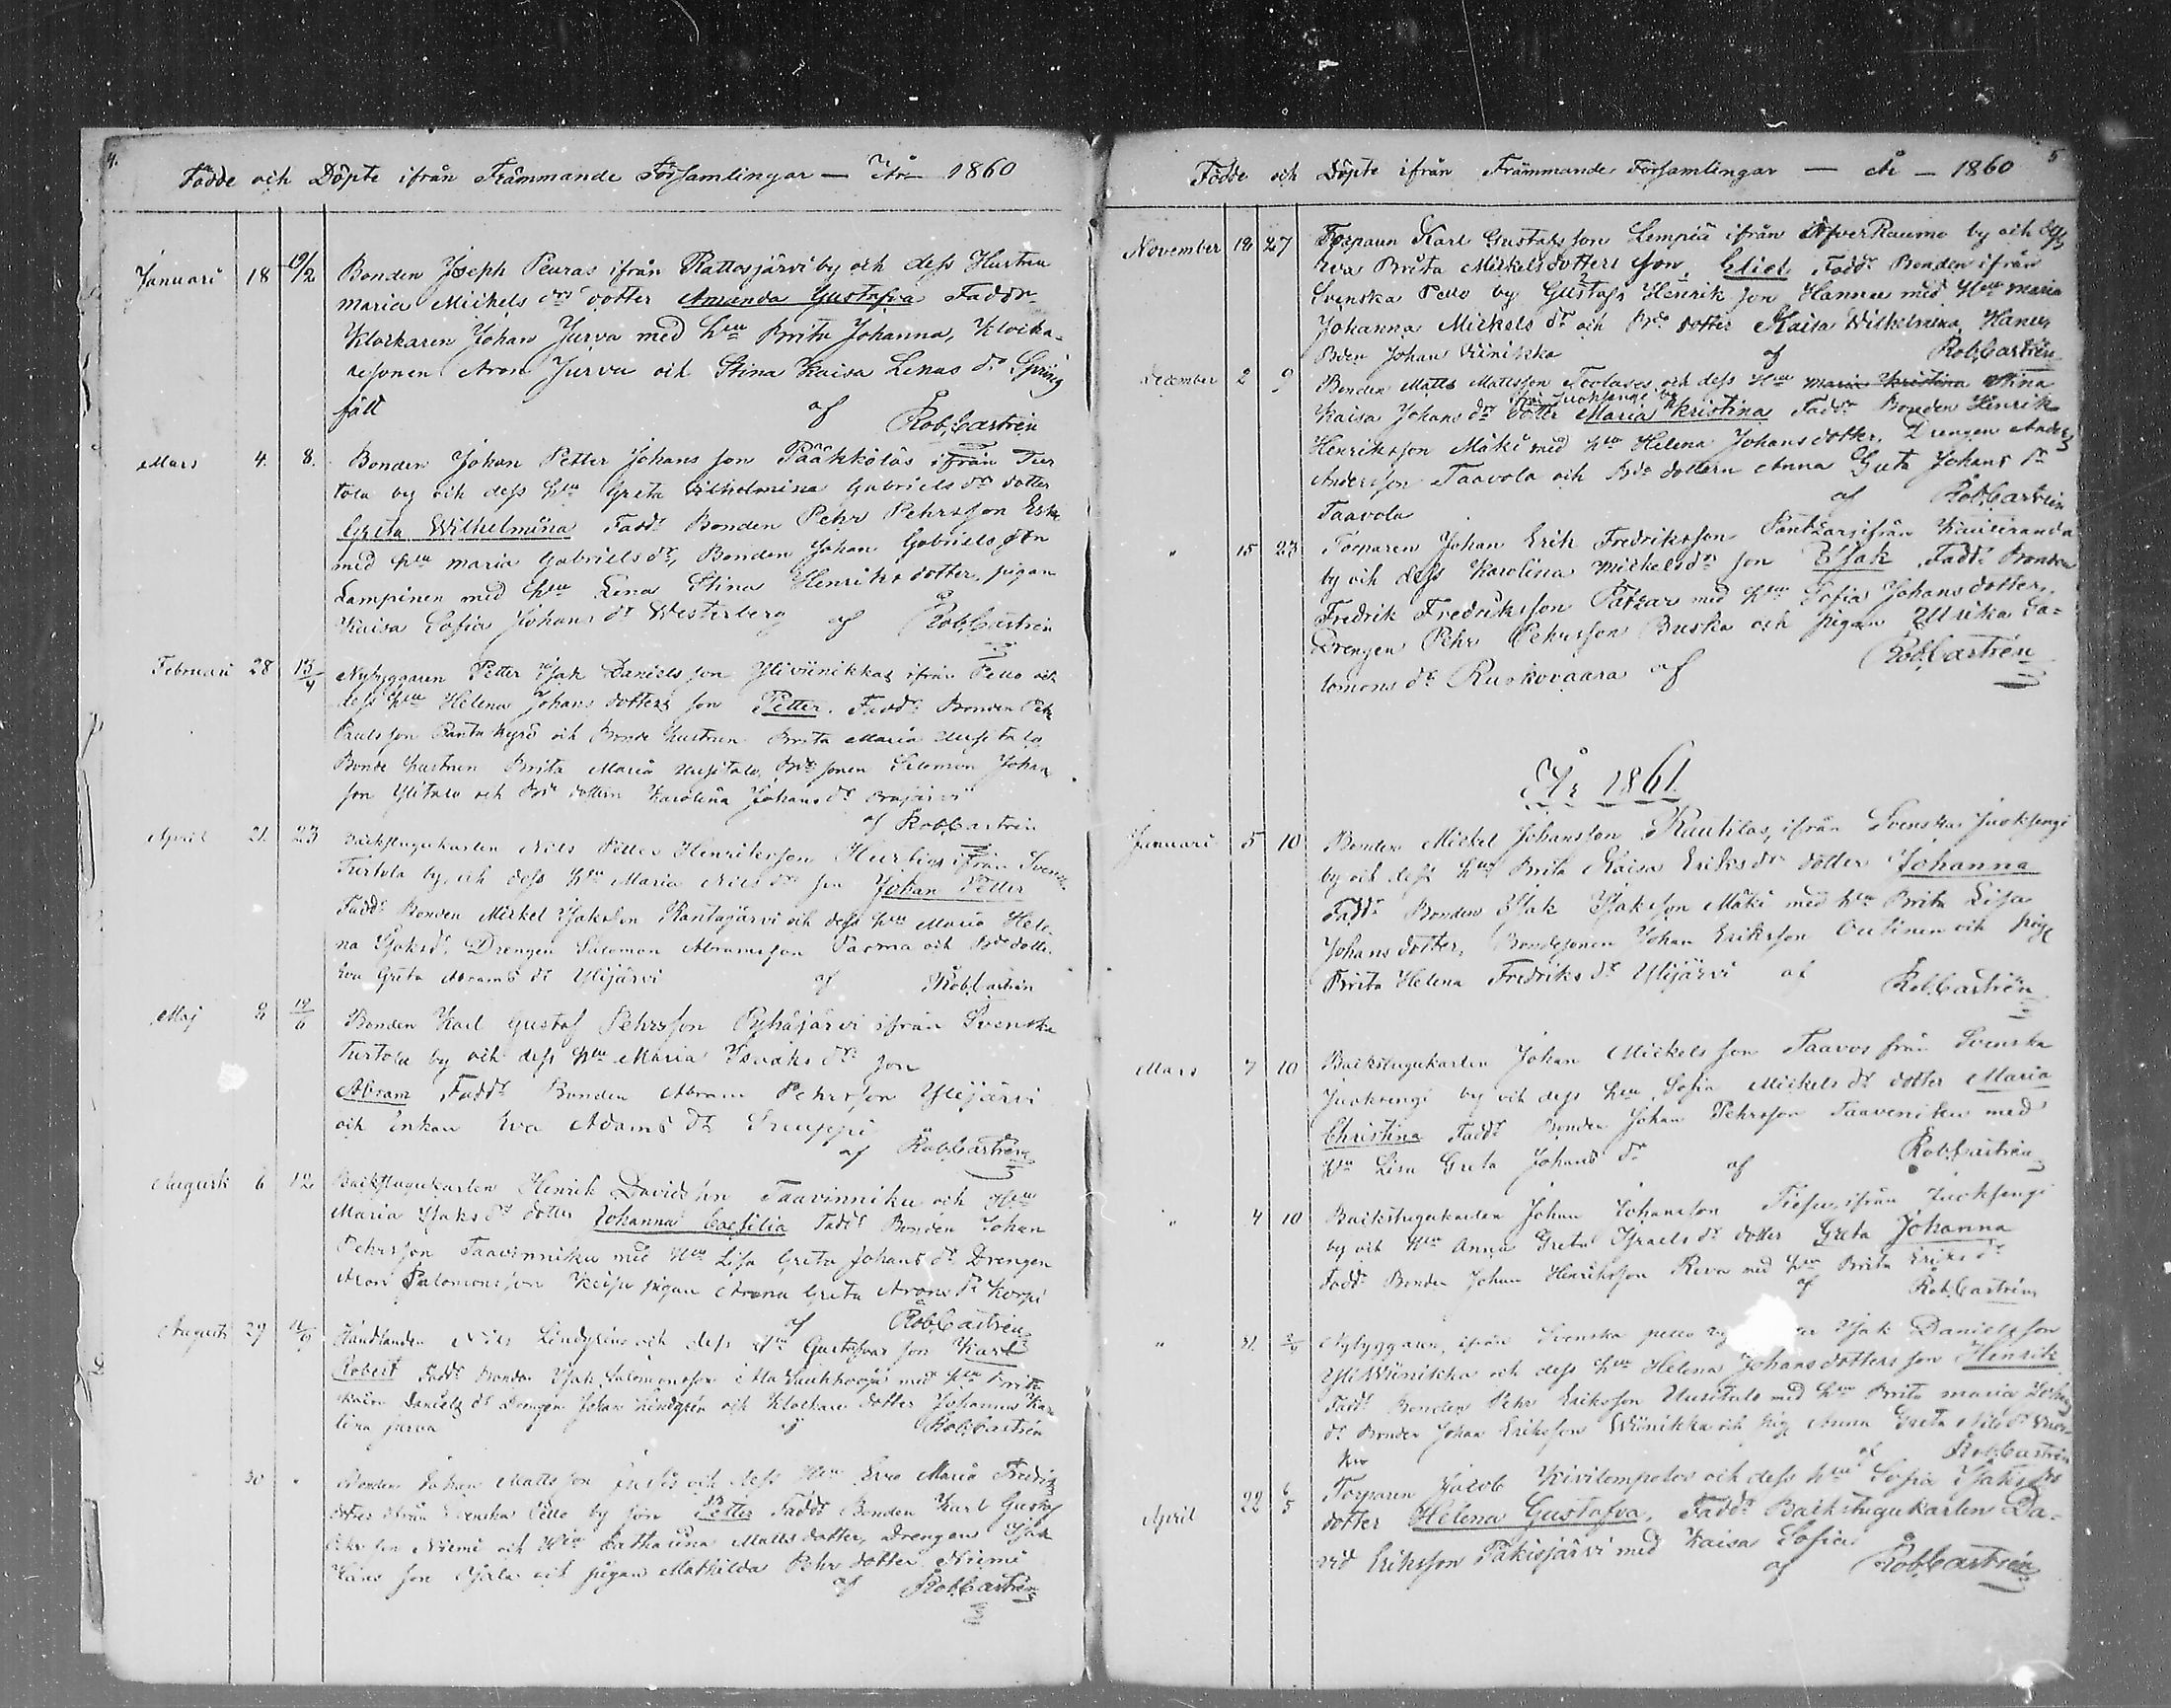 4.
Födde och Döpte ifrån Främmande Församlingar — År 1860
Januari 18 19/2 Bonden Joseph Peuras ifrån Rattosjärvi by och dess Hustru
Maria Mickels drs dotter Amanda Gustafva Faddr
Klockaren Johan Jurva med hru Brita Johanna, Klocka-
resonen Aron Jurva och Stina Kaisa Lenas dr Spring
fält af Rob. Castrén
Mars 4. 8. Bonden Johan Petter Johans son Pääkkölas ifrån Tur
tola by och dess hru Greta Vilhelmina Gabriels drs dotter
Greta Wilhelmina Fadd. Bonden Pehr Pehrsson
med hru Maria Gabriels dr, Bonden Johan Gabriels son
Lampinen med hru Lena Stina Henriks dotter, pigan
Kaisa Sofia Johans dr Westerberg af Rob. Castrén
Februari 28 15/4 Nybyggaren Petter Isak Daniels son Yliviinikkas ifrån Pello och
dess hru Helena Johans dotters son Petter. Fadd. Bonden
Pauls son Rantakyrö och Bonde hustrun Brita Maria Uusitalo
Bonde hustrun Brita Maria Uusitalo, Bde sonen Salomon Johan
son Ylitalo och Bde dottern Karolina Johans dr
af Rob. Castrén
April 21. 23 Backstugukarlen Nils Petter Henriksson Hurtigs ifrån Svenska
Turtola by, och dess hru Maria Nils drs son Johan Petter
Fadd. Bonden Mickel Isaksson Rantajärvi och dess hru Maria Hele-
na Isaks dr. Drengen Salomon Abramsson Parma och Bde dotte
Eva Greta Abrams dr Ylijärvi af Rob. Castrén
Maj 2 12/6 Bonden Karl Gustaf Pehrsson Pyhäjärvi ifrån Svenska
Turtola by och dess hru Maria Isaaks drs son
Abram Fadd. Bonden Abram Pehrsson Ylijärvi
och Enkan Eva Adams dr
af Rob. Castrén
Augusti 6 12 Backstugukarlen Henrik Davidsson Taavinniku och Hru
Maria Isaks drs dotter Johanna Caesilia Fadd. Bonden Johan
Pehrsson Taavinniku med Hru Lisa Greta Johans dr Drengen
Aron Salomonsson pigan Anna Greta Arons dr Korpi
af Rob. Castrén
Augusti 29 Handlanden Nils Lindgrens och dess Hru Gustafvas son Karl
Robert Fadd. Bonden Isak Salomonsson med hru Brita
Kaisa Daniels dr Drengen Johan Lindgren och Klockare dotter Johanna Ka-
lina Jurva af Rob. Castrén
30 " Bonden Johan Mattsson och dess Hru Eva Maria Fredriks
dotters ifrån Svenska Pello by son Petter Fadd. Bonden Karl Gustaf
son Niemi och Hru Catharina Matts dotter, Drengen Isak
son och pigan Mathilda Pehr dotter Niemi
af Rob. Castrén
5
Födde och Döpte ifrån Främmande Församlingar — År — 1860
November 18 27 Torparen Karl Gustafsson Lempiä ifrån Öfver Raumo by och
Eva Brita Mickelsdotters son, Eliel Fadd. Bonden ifrån
Svenska Pello by Gustafs Henrik son Hannu med Hru Maria
Johanna Mickels dr och Bde dotter Kaisa Wilhelmina Hannu
Bden Johan Viinikka af Rob. Castrén
December 2 9 Bonden Matts Mattsson och dess Hru Maria Kristina Stina
ifrån Juoksengi by
Kaisa Johans drs dotter Maria Kristina Fadd. Bonden Henrik
Henriksson Mäki med hru Helena Johansdotter, Drengen Anders
Andersson Taavola och Bde dottern Anna Greta Johans dr
Taavola af Rob. Castrén
" 15 23 Torparen Johan Erik Fredriksson Pantzar ifrån Kauliranda
by och dess Karolina Mickels drs son Isak Fadd. Bonden
Fredrik Fredriksson Patzar med hru Sofia Johansdotter,
Drengen Pehr Pehrsson Buska och pigan Ulrika Sa-
lomons dr Ruskovaara af Rob. Castrén
År 1861.
Januari 5 10 Bonden Mickel Johansson Rautilas, ifrån Svenska Juoksengi
by och dess hru Brita Kaisa Eriks drs dotter Johanna
Fadd. Bonden Isak Isaksson Mäki med hru Brita Lisa
Johans dotter, Bondesonen Johan Eriksson Outinen och pig.
Brita Helena Fredriks dr Ylijärvi af Rob. Castrén
Mars 7 10 Backstugukarlen Johan Mickels son Taavos från Svenska
Juoksengi by och dess hru Sofia Mickels drs dotter Maria
Christina Fadd. Bonden Johan Pehrsson Taaveniku med
Hru Lisa Greta Johans dr af Rob. Castrén
" 4 10 Backstugukarlen Johan Johansson ifrån Juoksengi
by och Hru Anna Greta Israels drs dotter Greta Johanna
Fadd. Bonden Johan Henriksson Reva med hru Brita Eriks dr
af Rob. Castrén
" 31. Nybyggaren, ifrån Svenska Pello by Isak Daniels son
Yliviinikka och dess hru Helena Johansdotters son Henrik
Fadd. Bonden Pehr Eriksson Uusitalo med hru Brita Maria Johans
dr Bonden Johan Eriksson Wiinikka och pig. Anna Greta Nils dr
af Rob. Castrén
April 22 6/5 Torparen Jacob Kivilompolos och dess hru Sofia Isaks drs
dotter Helena Gustafva, Fadd. Backstugukarlen Da-
vid Eriksson Pakisjärvi med Kaisa Sofia
af Rob. Castrén